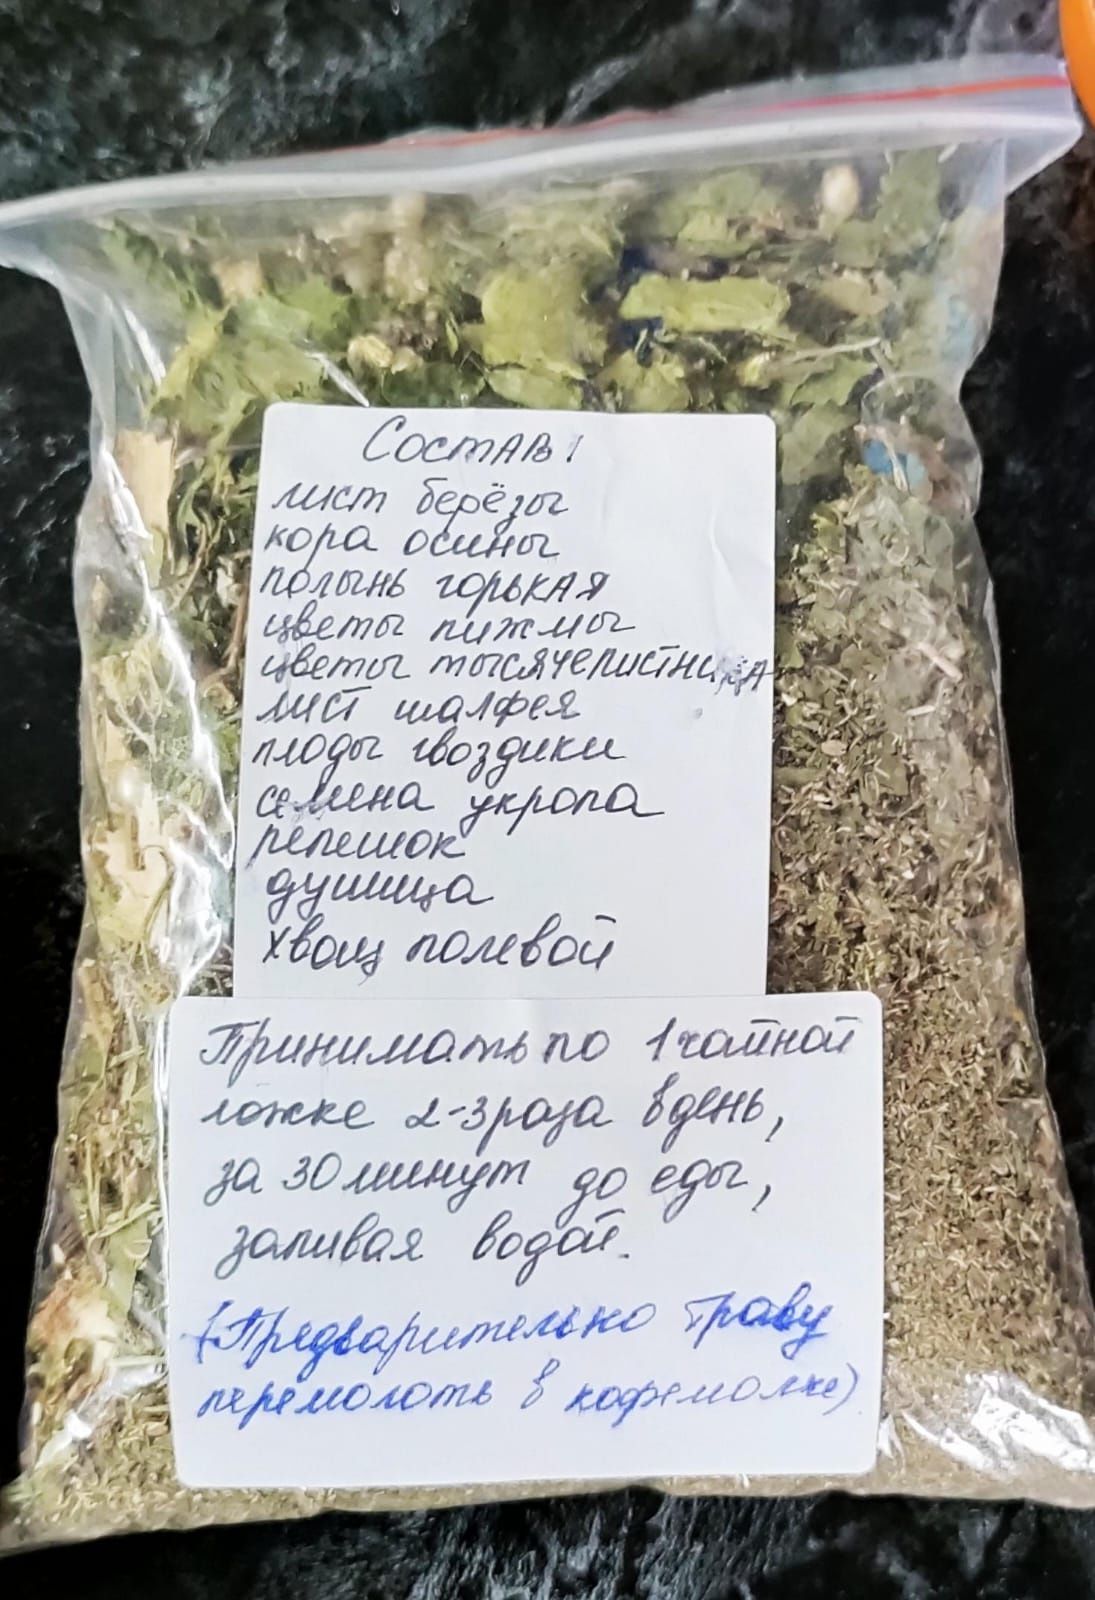 Состав!
лист берёзы
кора осины
полынь горькая
цветы пижмы
цветы тысячелистника
лист шалфея
плоды гвоздики
семена укропа
репешок
душица
хвощ полевой
Принимать по 1 чайной
ложке 2-3 раза в день,
за 30 минут до еды,
запивая водой.
(Предварительно траву
перемолоть в кофемолке)